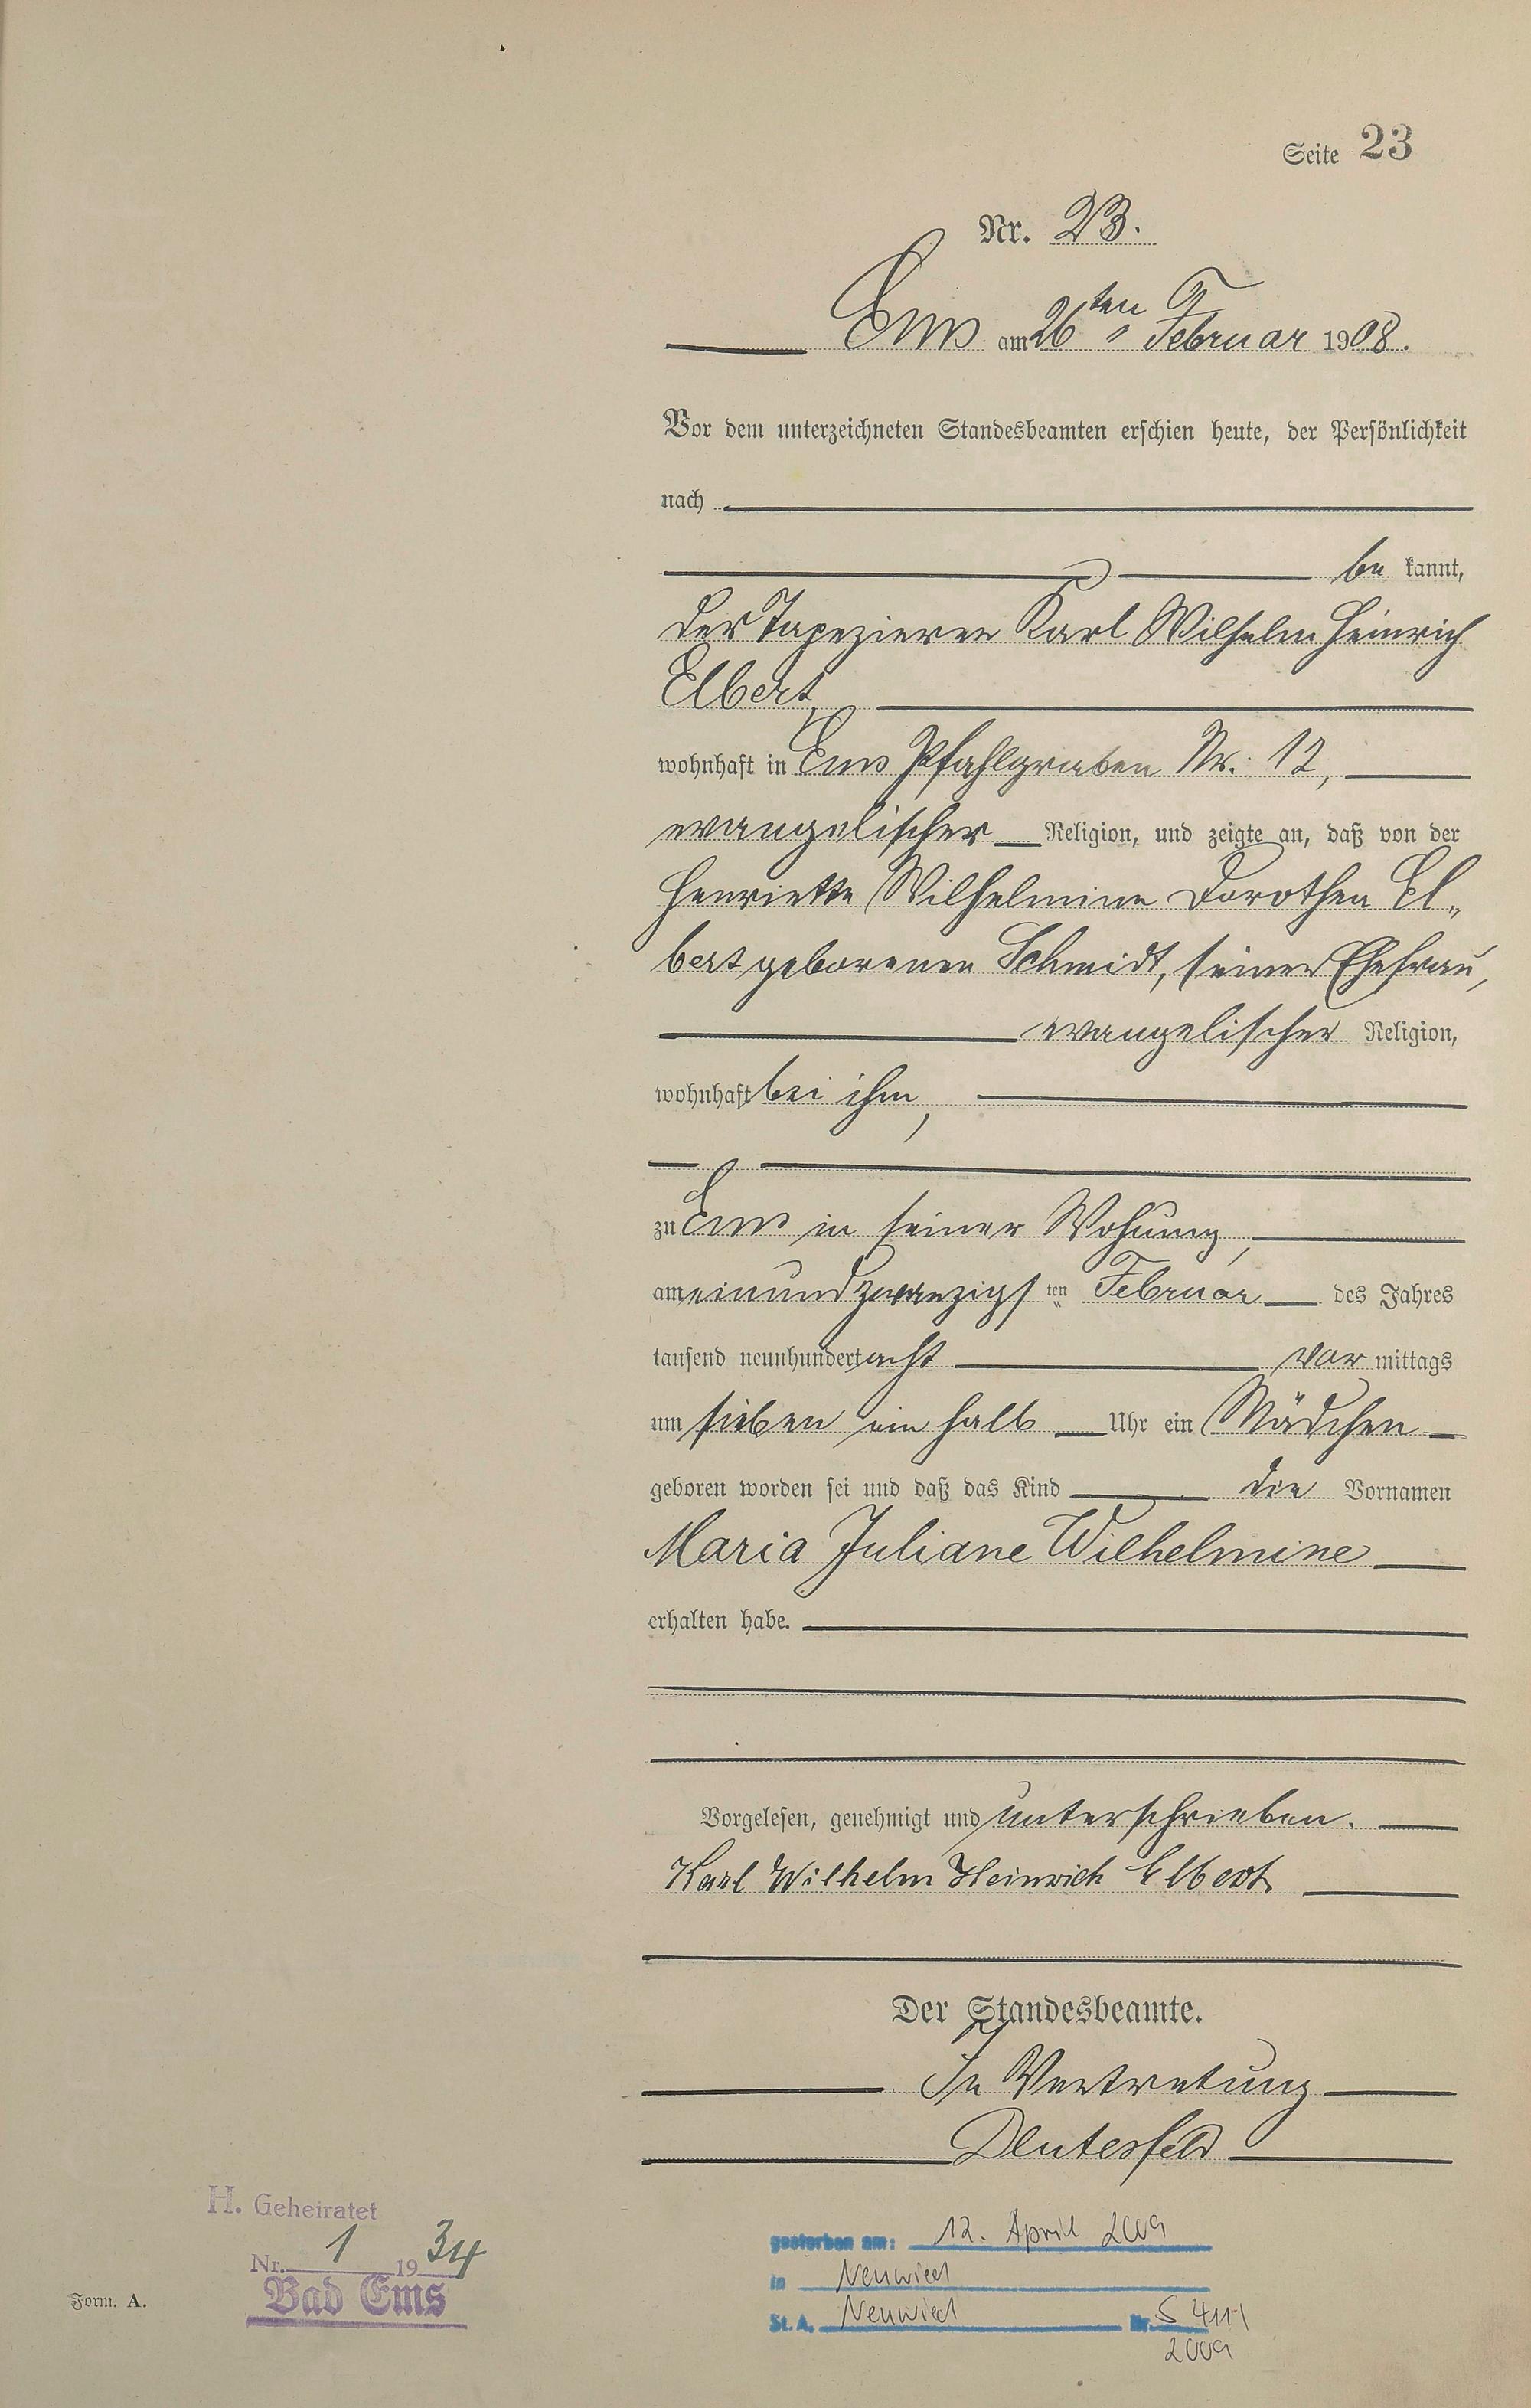 Seite 23
Nr. 23.
Ems am 26ten Februar 1908.
Vor dem unterzeichneten Standesbeamten erschien heute, der Persönlichkeit
nach
be kannt,
der Tapezierer Karl Wilhelm Heinrich
Elbert,
wohnhaft in Ems Pfahlgraben Nr. 12,
evangelischer Religion, und zeigte an, daß von der
Henriette Wilhelmine Dorothea El„
bert geborenen Schmidt, seiner Ehefrau,
evangelischer Religion,
wohnhaft bei ihm,
zu Ems in seiner Wohung,
am einundzwanzigsten Februar des Jahres
tausend neunhundert acht vor mittags
um sieben ein halb Uhr ein Mädchen
geboren worden sei und daß das Kind die Vornamen
Maria Juliane Wilhelmine
erhalten habe.
Vorgelesen, genehmigt und unterschrieben.
Karl Wilhelm Heinrich Elbert
Der Standesbeamte.
In Vertretung
H. Geheiratet
Nr. 1 1934
Bad Ems
Form. A.
gestorben am: 12. April 2009
in Neuwied
St. A. Neuwied Nr. S 411/
2009